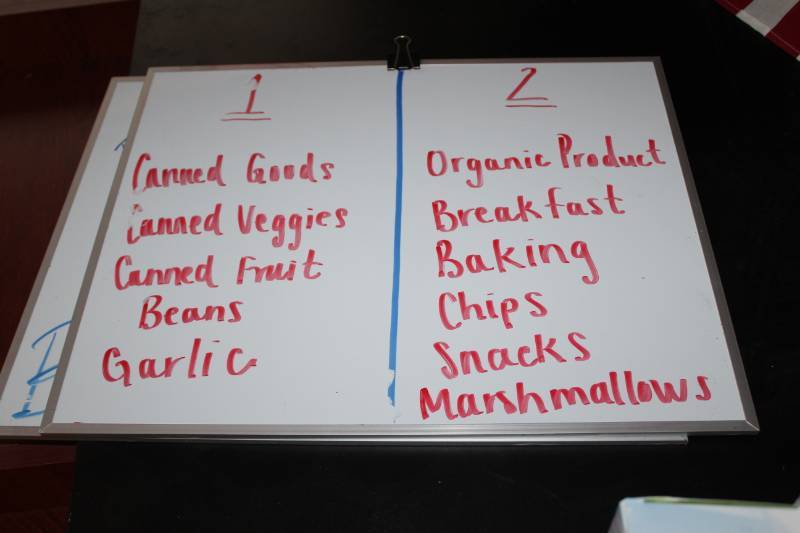 1
Canned Goods
Canned Veggies
Canned Fruit
Beans
Garlic
2
Organic Product
Breakfast
Baking
Chips
Snacks
Marshmallows